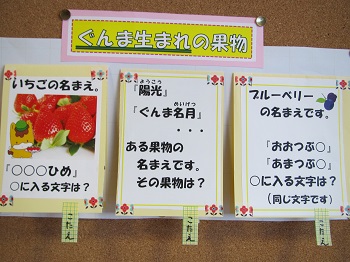 ぐんま生まれの果物
いちごの名まえ。
『○○○ひめ』
○に入る文字は？
こたえ
ようこう
『陽光』
めいげつ
『ぐんま名月』
・・・
ある果物の
名まえです。
その果物は？
こたえ
ブルーベリー
の名まえです。
『おおつぶ○』
『あまつぶ○』
○に入る文字は？
（同じ文字です）
こたえ